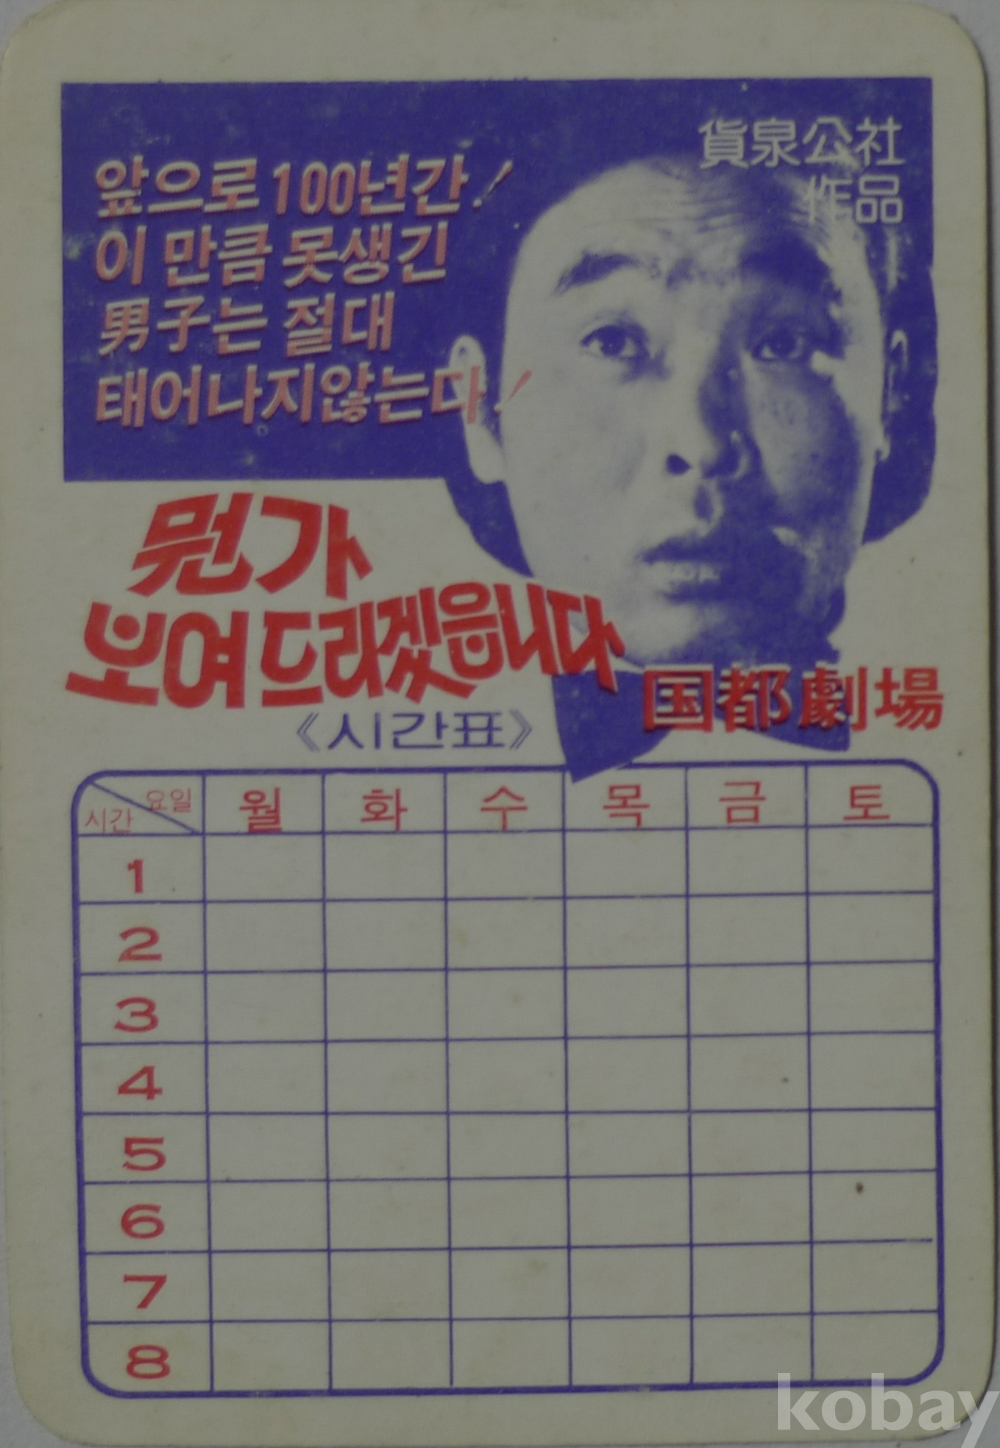 貨泉公社
作品
앞으로 100년간!
이 만큼 못생긴
男子는 절대
태어나지않는다!
뭔가
보여드리겠읍니다
国都劇場
《시간표》
요일
시간
월 화 수 목 금 토
1
2
3
4
5
6
7
8
kobay